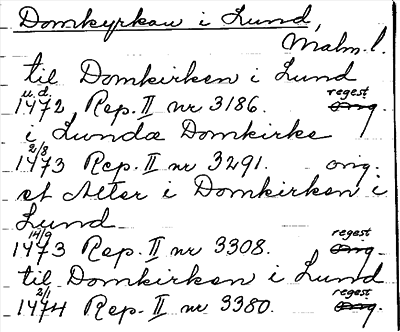 Domkyrkan i Lund,
Malm. l.
til Domkirken i Lund
u. d. regest
1472 Rep. II nr 3186. orig.
i Lundæ Domkirke
2/8
1473 Rep. II nr 3291. orig.
et Alter i Domkirken i
Lund
14/9 regest
1473 Rep. II nr 3308. orig.
til Domkirken i Lund
2/1 regest
1474 Rep. II nr 3380. orig.